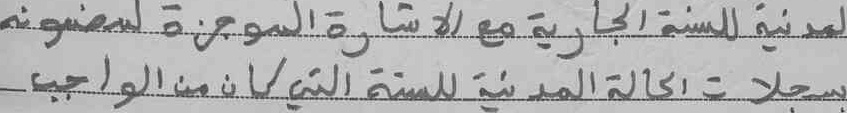 لمدنية للسنة الجارية مع الاشارة الموجزة لمضمونه
بسجلات الحالة المدنية للسنة التي كان من الواجب